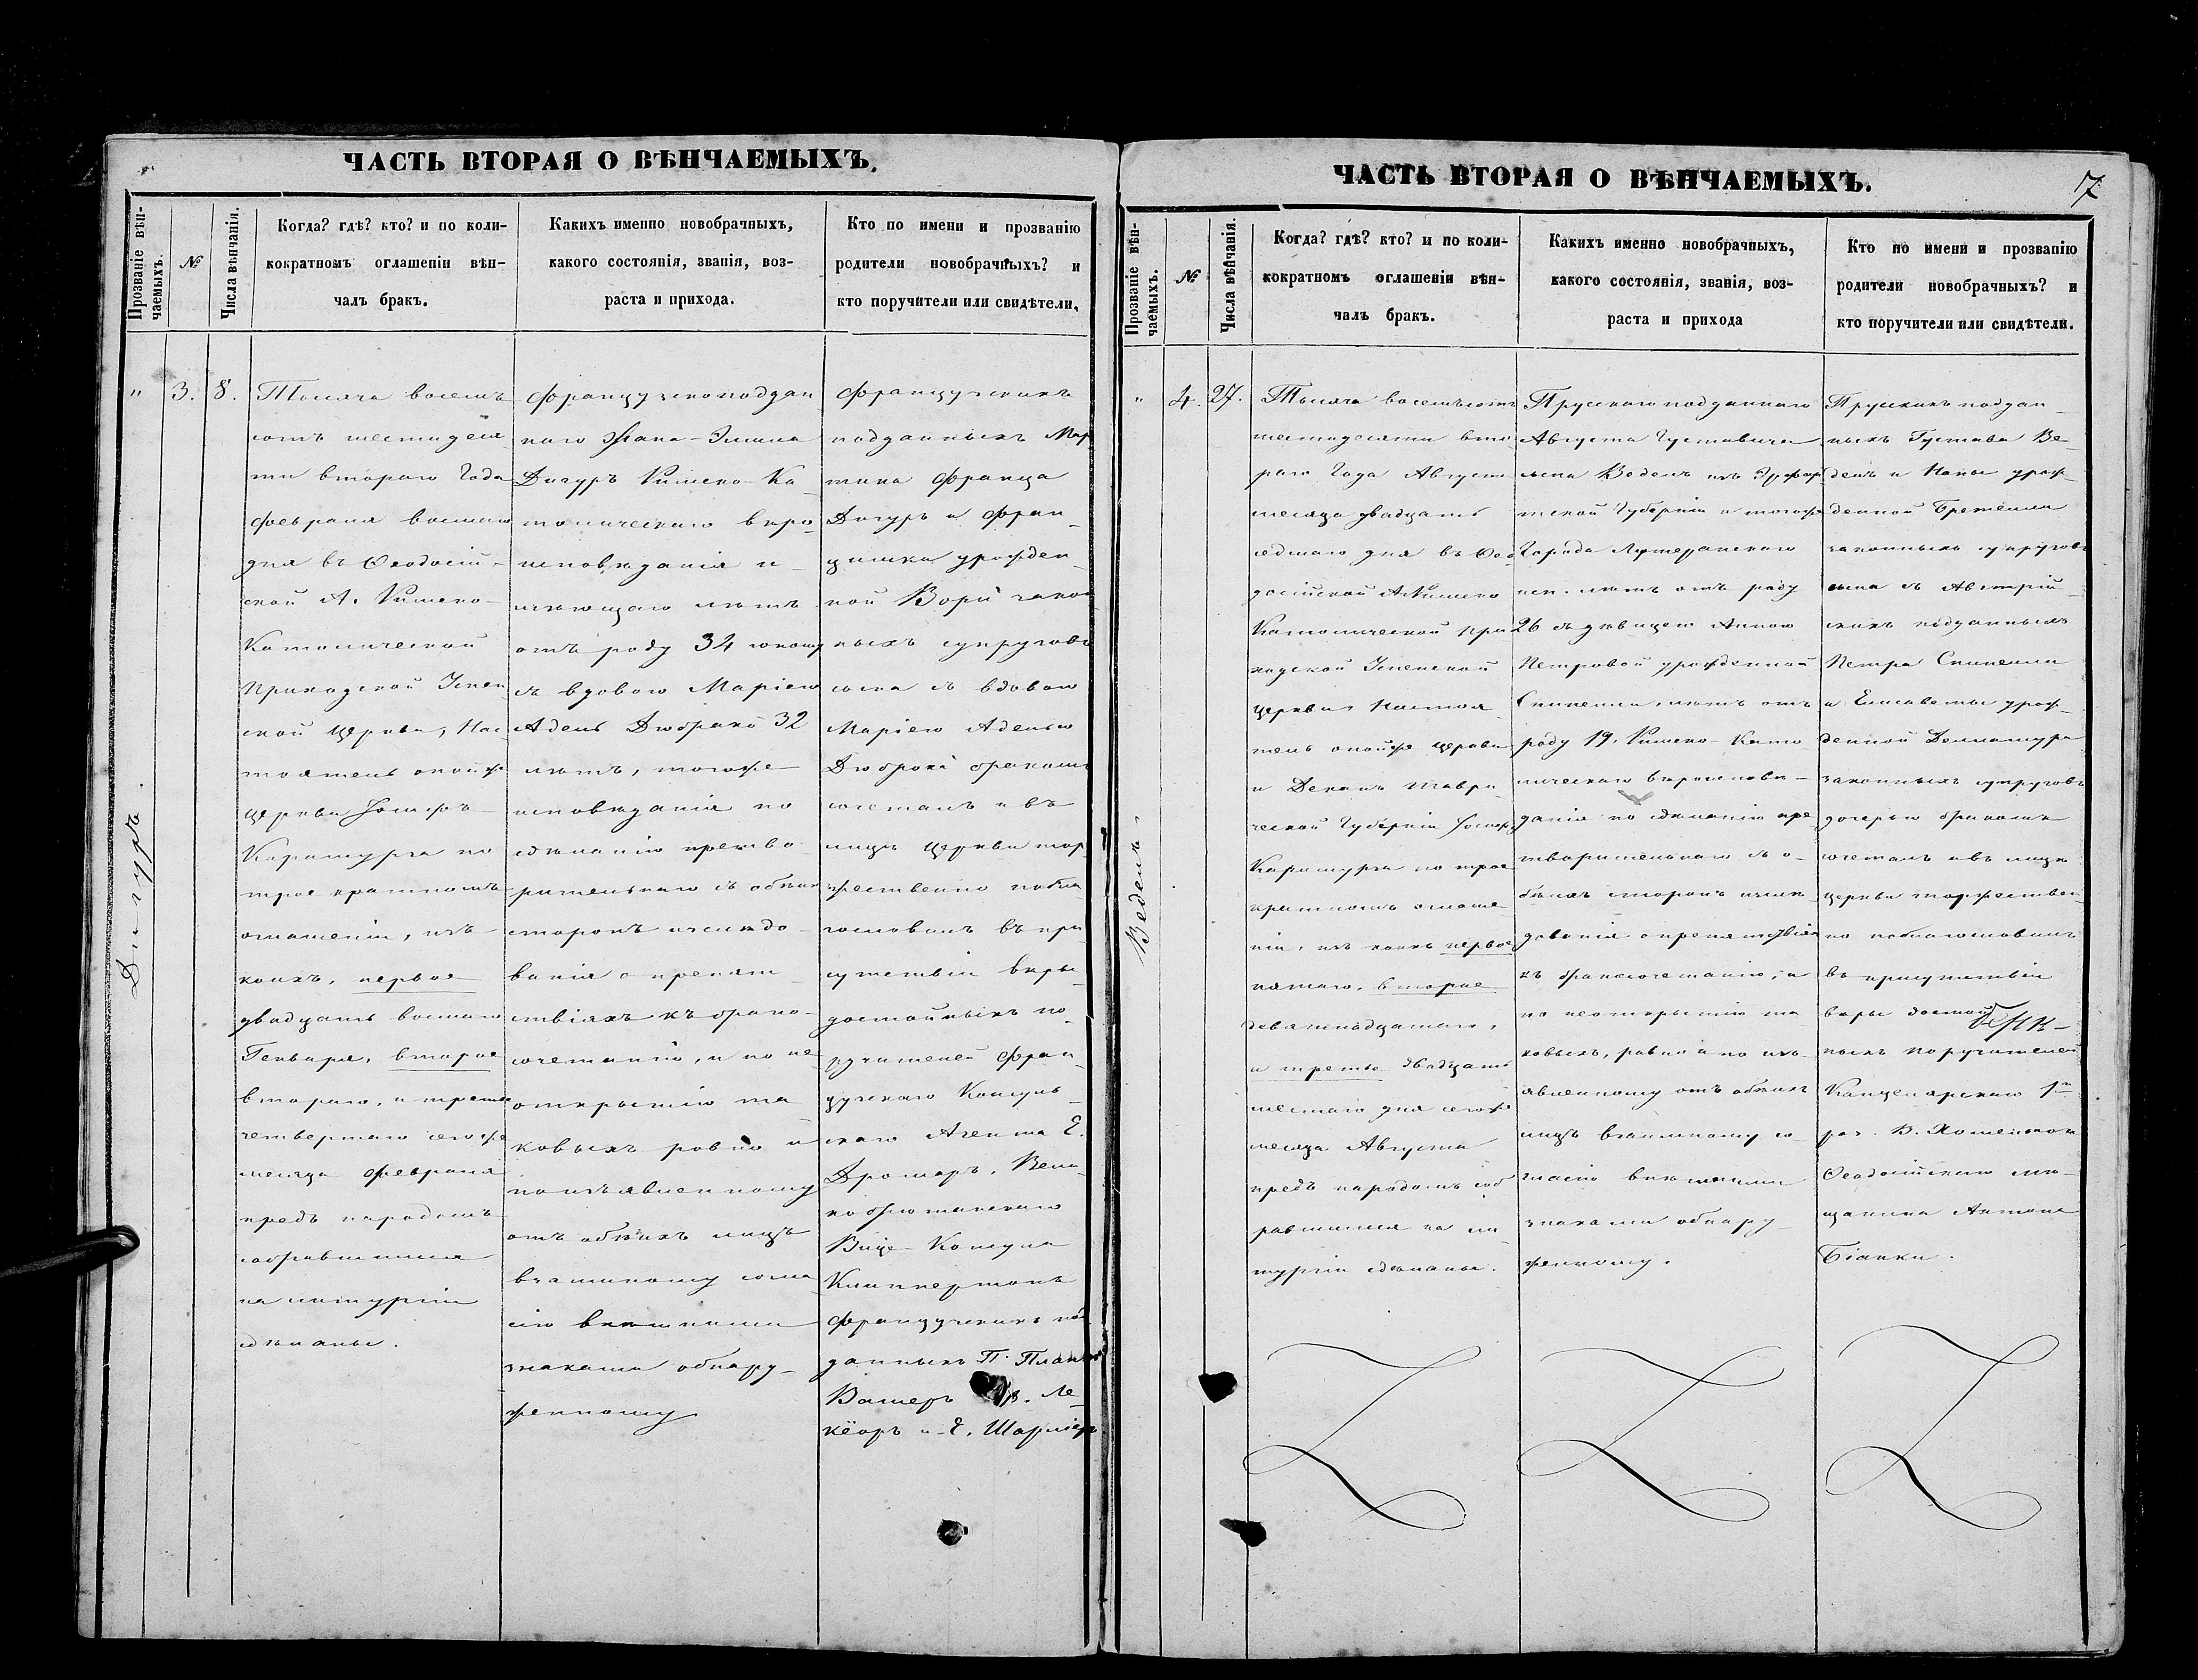 ЧАСТЬ ВТОРАЯ О ВѢНЧАЕМЫХЪ.
Прозваніе вѣн-
чаемыхъ.
№
Числа вѣнчанія.
Когда? гдѣ? кто? и по коли-
кократномъ оглашеніи вѣн-
чалъ бракъ.
Какихъ именно новобрачныхъ,
какого состоянія, званія, воз-
раста и прихода.
Кто по имени и прозванію
родители новобрачныхъ? и
кто поручители или свидѣтели.
Дигуръ.
" 3. 8.
Тысяча восемь
сотъ шестидеся
ти втораго Года
февраля восмаго
дня въ Ѳеодосій-
ской А. Римско-
Католической
Приходской Успен
ской Церкви, Нас
тоятель онойже
Церкви Іосифъ
по
трое кратномъ
оглашеніи, изъ
коихъ, первое
двадцать восмаго
Генваря, второе
втораго, и третье
четвертаго сегоже
месяца февраля
предъ народомъ
собравшимся
на литургіи
сдѣланы.
французскоподдан
наго Жана-Эмила
Дигуръ Римско-Ка
толическаго вѣро
исповѣданія и
имѣющаго лѣтъ
отъ роду 34 юношу
съ вдовою Маріею
Адель Дюбрано 32
лѣтъ, тогоже
исповѣданія по
сдѣланію предво
рительнаго съ обѣих
сторонъ изслѣдо-
ванія о препят
ствіяхъ къ брако-
сочетанію, и по не
открытію та
ковыхъ ровно и
по изъявленному
отъ обѣихъ лицъ
взаимному согла
сію внѣшними
знаками обнару-
женному
французскихъ
подданныхъ Мар
тина Франца
Дигуръ и Фран
циски урожден
ной Вори закон
ныхъ супруговъ
сына съ вдовою
Маріею Аделью
Дюброно бракомъ
сочеталъ и въ
лицѣ Церкви тор-
жественно побла
гословилъ въ при
сутствіи вѣры
достойныхъ по-
ручителей фран-
цузскаго Консуль-
скаго Агента Е.
Дромаръ, Вели-
кобританскаго
Вице-Консула
Клиппертонъ
французскихъ под
данныхъ П.
Ле
кёоръ и Е. Шарліеръ
ЧАСТЬ ВТОРАЯ О ВѢНЧАЕМЫХЪ.
17
Прозваніе вѣн-
чаемыхъ.
№
Числа вѣнчанія.
Когда? гдѣ? кто? и по коли-
кократномъ оглашеніи вѣн-
чалъ бракъ.
Какихъ именно новобрачныхъ,
какого состоянія, званія, воз-
раста и прихода
Кто по имени и прозванію
родители новобрачныхъ? и
кто поручители или свидѣтели.
Ведель
" 4. 27.
Тысяча восемьсотъ
шестидесяти вто
раго Года Августа
месяца двадцать
седмаго дня въ Ѳео
досійской А Римско
Католической При
ходской Успенской
Церкви Настоя
тель онойже Церкви
и Деканъ Таври
ческой Губерніи Іосифъ
по трое
кратномъ оглаше
ніи, изъ коихъ первое
пятаго, второе
девятнадцатаго,
и третье двадцать
шестаго дня сегоже
месяца Августа
предъ народомъ соб
равшимся на ли
тургіи сдѣланы.
Прусскаго подданнаго
Августа Густавича
сына Ведель изъ Эрфор
тской Губерніи и тогоже
Города Лютеранскаго
исп. лѣтъ отъ роду
26 съ дѣвицею Анною
Петровой урожденной
Спинелли, лѣтъ отъ
роду 19. Римско-Като
лическаго вѣроисповѣ-
данія по сдѣланію пред
творительнаго съ о-
бѣихъ сторонъ изслѣ
дованія о препятствіях
къ бракосочетанію, и
по неоткрытію та
ковыхъ, равно и по изъ-
явленному отъ обѣихъ
лицъ взаимному со-
гласію внѣшними
знаками обнару-
женному.
Прусскихъ поддан-
ныхъ Густава Ве-
дель и урож-
денной
законныхъ супруговъ
сына съ Австрій-
скихъ подданныхъ
Петра Спинелли
и Елисаветы урож-
денной
законныхъ супруговъ
дочерью бракомъ
сочеталъ и въ лицѣ
церкви торжествен-
но поблагословилъ
въ присутствіи
вѣры достой
ныхъ Поручителей
Канцелярскаго 1го
раз. В.
Ѳеодосійскаго мѣ-
щанина Антона
Біанки.